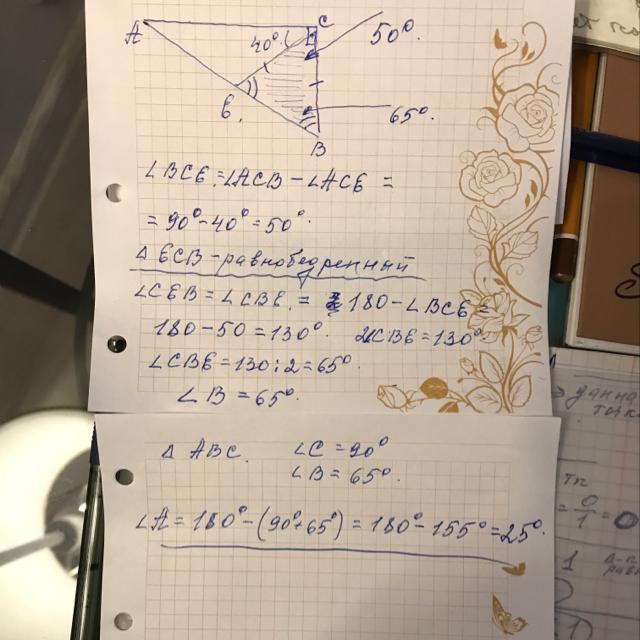 A C
40° 50°
E
65°
B
∠BCE = ∠ACB - ∠ACE =
= 90° - 40° = 50°.
Δ ECB - равнобедренный
∠CEB = ∠CBE = 180 - ∠BCE =
180 - 50 = 130° 2∠CBE = 130°
∠CBE = 130 : 2 = 65°
∠B = 65°.
Δ ABC. ∠C = 90°
∠B = 65°
∠A = 180° - (90° + 65°) = 180° - 155° = 25°.
данна
точк
= 0/1 = 0
1